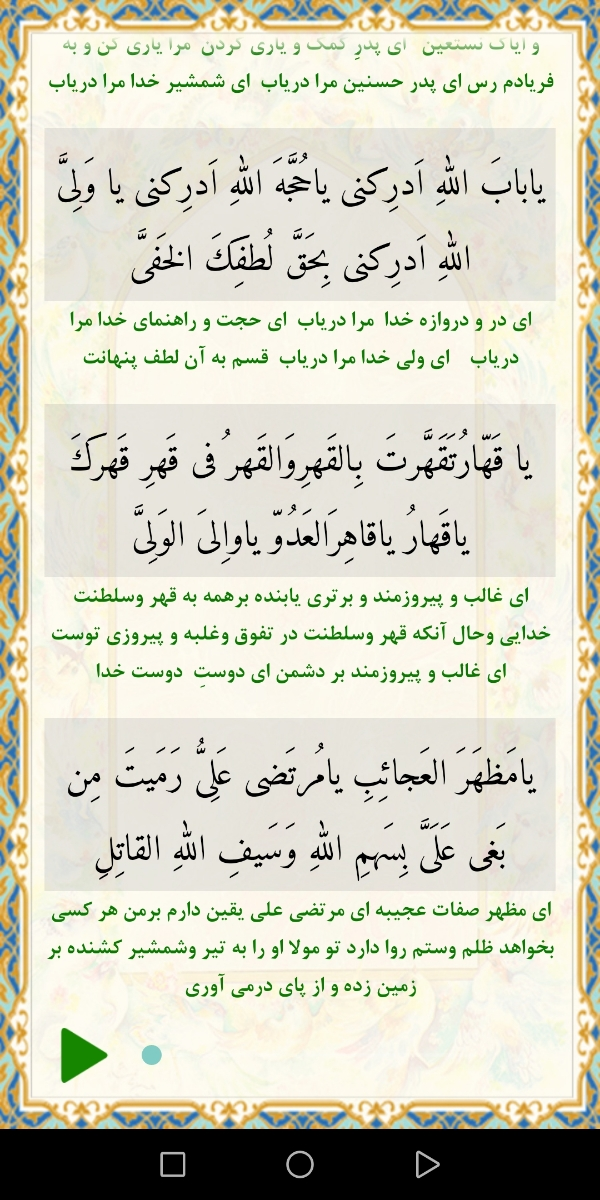 و ایاک نستعین ای پدرِ کمک و یاری کردن مرا یاری کن و به
فریادم رس ای پدر حسنین مرا دریاب ای شمشیر خدا مرا دریاب
یابابَ اللهِ اَدرِکنی یاحُجَّهَ اللهِ اَدرِکنی یا وَلِیَّ
اللهِ اَدرِکنی بِحَقَّ لُطفِکَ الخَفیَّ
ای در و دروازه خدا مرا دریاب ای حجت و راهنمای خدا مرا
دریاب ای ولی خدا مرا دریاب قسم به آن لطف پنهانت
یا قَهّارُتَقَهَّرتَ بِالقَهرِوَالقَهرُ فی قَهرِ قَهرکَ
یاقَهارُ یاقاهِرَالعَدُوّ یاوالِیَ الوَلِیَّ
ای غالب و پیروزمند و برتری یابنده برهمه به قهر وسلطنت
خدایی وحال آنکه قهر وسلطنت در تفوق وغلبه و پیروزی توست
ای غالب و پیروزمند بر دشمن ای دوستِ دوست خدا
یامَظهَرَ العَجائِبِ یامُرتَضی عَلِیُّ رَمَیتَ مِن
بَغی عَلَیَّ بِسَهمِ اللهِ وَسَیفِ اللهِ القاتِلِ
ای مظهر صفات عجیبه ای مرتضی علی یقین دارم برمن هر کسی
بخواهد ظلم وستم روا دارد تو مولا او را به تیر وشمشیر کشنده بر
زمین زده و از پای درمی آوری